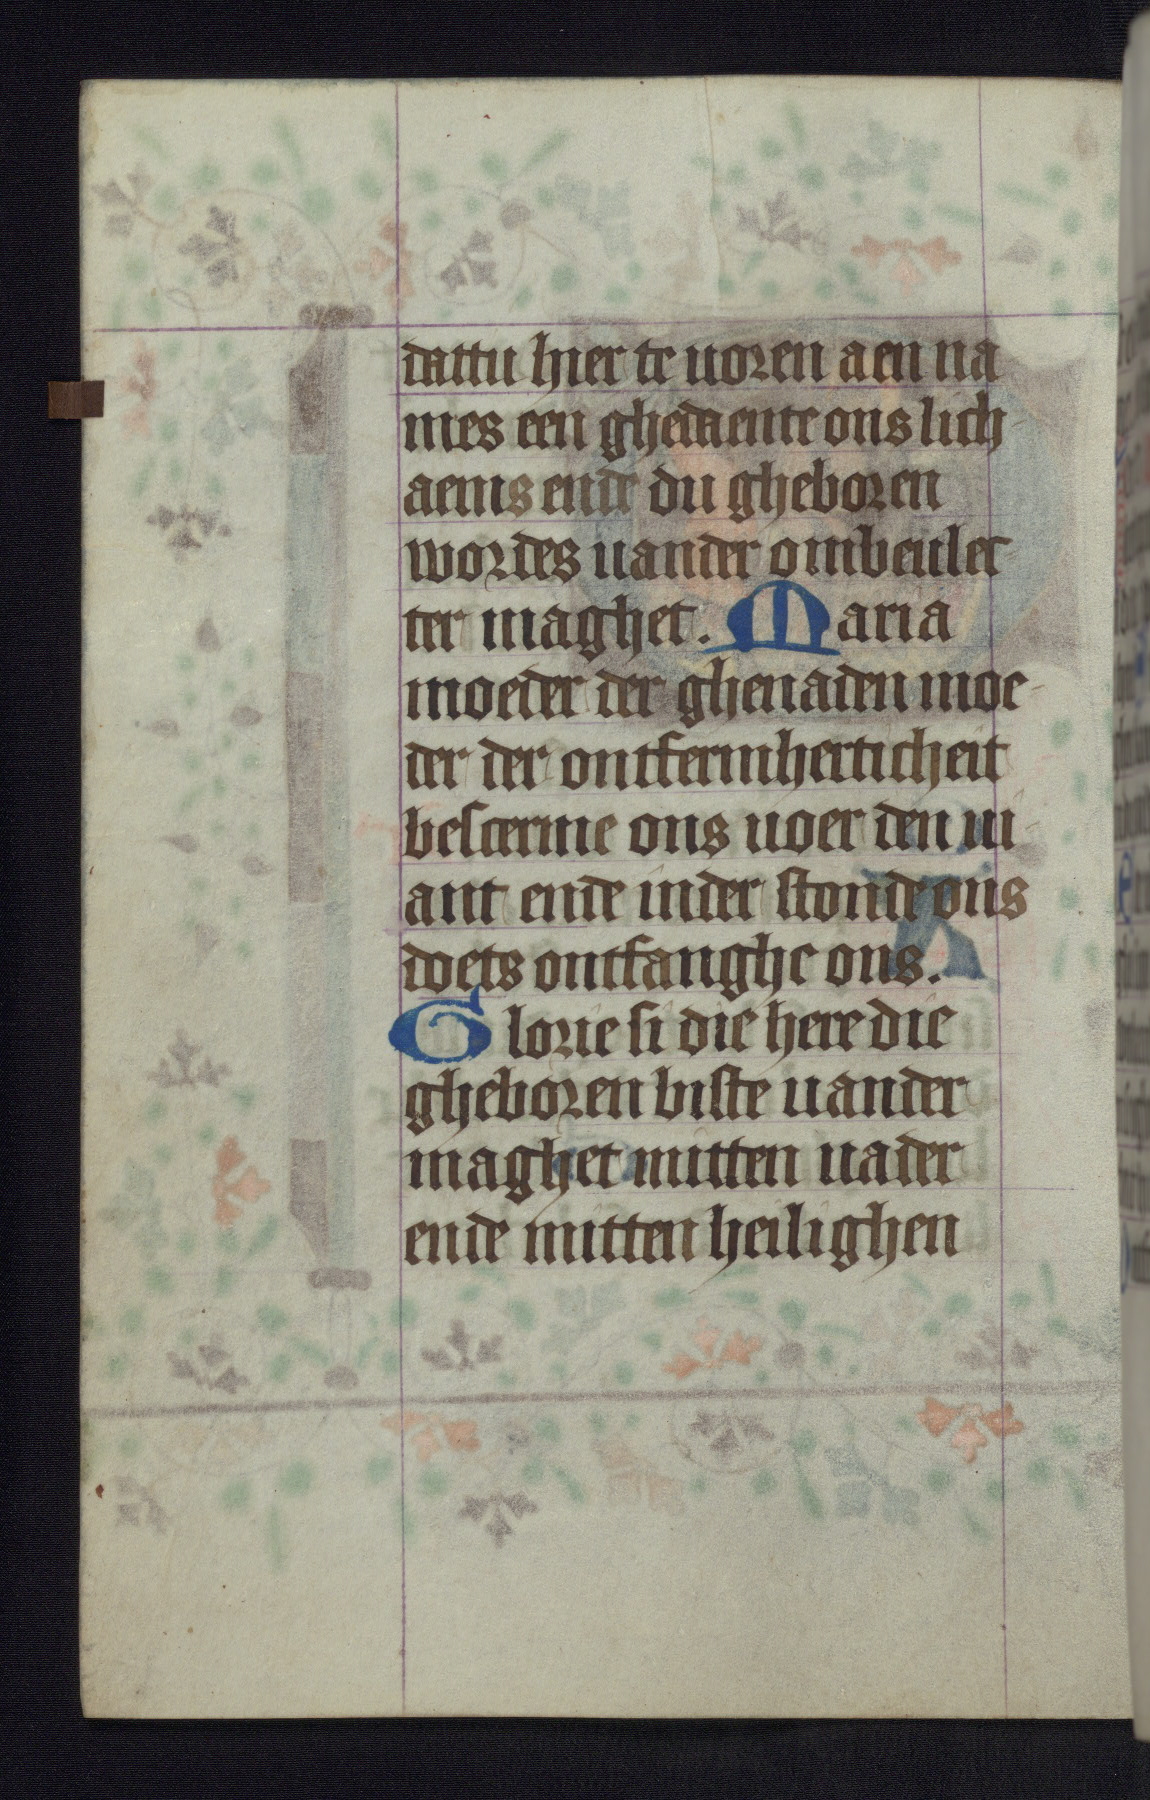 dattu hier te uoren aen na
mes een ghedaente ons lich
aems ende du gheboren
wordes uander ombeulec
ter maghet. Maria
moeder der ghenaden moe-
der der ontfermherticheit
bescerme ons uoer den ui-
ant ende inder stonde ons
doets ontfanghe ons.
Glorie si die here die
gheboren biste uander
maghet mitten uader
ende mitten heilighen